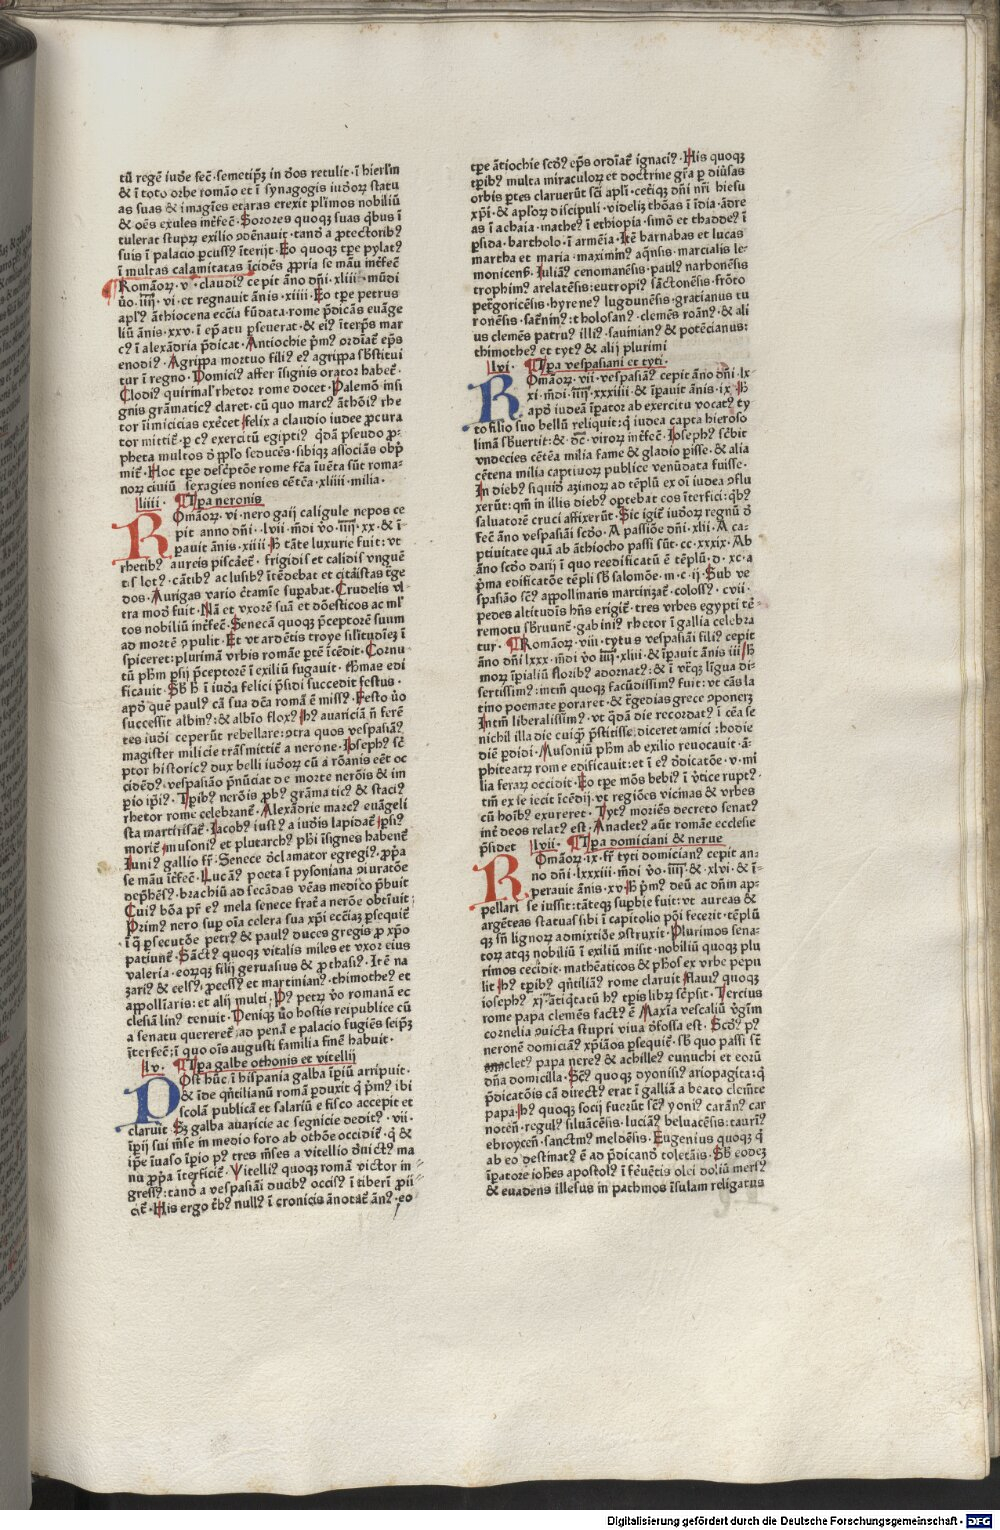 tū regē iudȩ fec̄. semetip̄ꝫ in d̄os retulit. ī hierl̄m
& ī toto orbe romāo et ī synagogis iud̄oꝝ statu
as suas & imagīes et aras erexit pl̄imos nobiliū
& oēs exules int̄fec̄. Sorores quoqꝫ suas q̇bus ī
tulerat stupꝝ exilio ꝯdēnauit. tand̄ a ꝓtectoribꝰ
suis ī palacio ꝑcussꝰ īterijt. Eo quoqꝫ tꝑe pylatꝰ
ī multas calamitatas īcidēs ꝓpria se manu int̄fec̄
Romāoꝝ. v. claudiꝰ cepit āno dn̄i. xliii. mūdi
v̇o. iiii. vi. et regnauit ānis. xiiii. Eo tꝑe petrus
apl̄ꝰ āthiocena ecc̄ia fūdata. rome p̄dicās euāge
liū ānis. xxv. ī ep̄atu ꝑseuerat. & eiꝰ īterp̄s mar
cꝰ ī alexādria p̄dicat. Antiochie p̄mꝰ ordīat̄ ep̄s
enodiꝰ. Agrippa mortuo filiꝰ eꝰ agrippa sb̄stitui
tur ī regno. Domiciꝰ affer īsignis orator habet̄.
Clodiꝰ quirinal' rhetor rome docet. Palemō insi
gnis grāmaticꝰ claret. cū quo marcꝰ āthōiꝰ rhe
tor īimicicias exercet. felix a claudio iudee ꝓcura
tor mittit̄. ꝑ eꝰ exercitū egiptiꝰ q̇dā pseudo ꝓ-
pheta multos d̄ pp̄lo seducēs. sibiqꝫ associās obp̄
mit̄. Hoc tꝑe desc̄ptōe rome fc̄a īuēta sūt roma-
noꝝ ciuiū sexagies nonies cētēa. xliii. milia.
liiii. Tꝑa neronis
Romāoꝝ. vi. nero gaij caligule nepos ce
pit anno dn̄i. lvii. m̄di v̇o. iiii. xx. & ī-
pauit ānis. xiiii. H̄ tāte luxurie fuit: vt
rhetibꝰ aureis piscaret̄. frigidis et calidis vnguē
tis lotꝰ. cātibꝰ ac lusibꝰ ītēdebat et citaristas tege
dos. Aurigas vario c̄tamīe suꝑabat. Crudelis vl
tra modū fuit. Nā et vxorē suā et dōesticos ac ml'
tos nobiliū int̄fec̄. Senecā quoqꝫ p̄ceptorē suum
ad mortē ꝯpulit. Et vt ardētis troye sil'itudīeꝫ ī
spiceret: plurimā vrbis romāe ꝑtē īcēdit. Cornu-
tū ph̄m ꝑsij p̄ceptorē ī exiliū fugauit. thermas edi
ficauit. Sb̄ h̄ ī iud̄a felici p̄sidi succedit festus.
apd̄ quē paulꝰ cā sua dc̄a romā ē missꝰ. Festo v̇o
successit albinꝰ: & albīo florꝰ. hꝰ auariciā n̄ ferē
tes iud̄i ceperūt rebellare: ꝯtra quos vespasiāꝰ
magister milicie trāsmittit̄ a nerone. Iosephꝰ sc̄
ptor historicꝰ dux belli iud̄oꝝ cū a rōanis eēt oc
cidēdꝰ. vespasiāo p̄nūciat de morte nerōis & im
ꝑio ip̄iꝰ. Tꝑibꝰ nerōis ꝓbꝰ grāmaticꝰ & staciꝰ
rhetor rome celebrant̄. Alexādrie marcꝰ euāgeli
sta martirisat̄. Iacobꝰ iustꝰ a iud̄is lapidat̄. ꝑsiꝰ
morit̄. musoniꝰ et plutarchꝰ ph̄i īsignes habent̄
Iuniꝰ gallio fr̄. Senece d̄clamator egregiꝰ. ꝓp̄a
se māu īt̄fec̄. Lucāꝰ poeta ī pysoniana ꝯiuratōe
dep̄hēsꝰ. brachiū ad secādas vēas medico p̄buit
Cuiꝰ bōa pr̄ eꝰ mela senece frat̄ a nerōe obtīuit
Primꝰ nero suꝑ oīa celera sua xp̄i ecc̄iaꝫ ꝑsequit̄
ī q̄ ꝑsecutōe petrꝰ & paulꝰ duces gregis ꝓ xp̄o
patiunt̄. Sanctꝰ quoqꝫ vitalis miles et vxor eius
valeria. eorqꝫ filij geruasius & ꝓthasiꝰ. Itē na
zariꝰ & celsꝰ. ꝓcessꝰ et martinianꝰ. thimotheꝰ et
appolliaris: et alij multi. Pꝰ petꝝ v̇o romanā ec
clesiā linꝰ tenuit. Deniqꝫ v̇o hostis reipublice cū
a senatu quereret̄ ad penā e palacio fugiēs seip̄ꝫ
īterfec̄; ī quo oīs augusti familia finē habuit.
lv. Tꝑa galbe othonis et vitellij
Post hūc ī hispania galba īꝑiū arripuit.
& īde qn̄tilianū romā ꝑduxit q̇ p̄mꝰ ibi
scolā publicā et salariū e fisco accepit et
claruit. Sꝫ galba auaricie ac segnicie deditꝰ. vii.
īꝑij sui mēse in medio foro ab othōe occidit̄. q̇ &
ip̄e īuaso īꝑio pꝰ tres mēses a vitellio d̄uictꝰ ma
nu ꝓp̄a īterficit̄. Vitelliꝰ quoqꝫ romā victor in-
gressꝰ: tand̄ a vespasiāi ducibꝰ occisꝰ ī tiberī ꝓii-
cit̄. His ergo t̄bꝰ nullꝰ ī cronicis ānotat̄ ānꝰ. eo
tꝑe ātiochie scd̄ꝰ ep̄s ordīat̄ ignaciꝰ. His quoqꝫ
tꝑibꝰ multa miraculoꝝ et doctrine gr̄a ꝑ diūsas
orbis ꝑtes claruerūt sc̄i apl̄i. cet̄iqꝫ dn̄i nr̄i hiesu
xp̄i. & apl̄oꝝ discipuli. videliꝫ thōas ī īdia. ādre
as ī achaia. matheꝰ ī ethiopia. simō et thaddeꝰ ī
ꝑsida. bartholoꝰ. ī armēia. Itē barnabas et lucas
martha et maria. maximinꝰ aq̄nsis. marcialis le-
monicens̄. Iuliāꝰ cenomanēsis. paulꝰ narbonēsis
trophimꝰ arelatēsis: eutropiꝰ sāctonēsis. frōto
pet̄goricēsis. hyreneꝰ lugdunēsis. gratianus tu
ronēsis. sat̄ninꝰ: tholosanꝰ. clemēs roānꝰ. & ali
us clemēs patruꝰ illiꝰ. sauinian & potēcianus:
thimotheꝰ et tytꝰ & alij plurimi
lvi. Tꝑa vespasiani et tyti.
Romāoꝝ. vii. vespasiāꝰ cepit āno dn̄i. lx-
xi. m̄di. iiii. xxxiiii. & īꝑauit ānis. ix. H̄
apd̄ iudeā īꝑator ab exercitu vocatꝰ ty
to filio suo bellū reliquit: q̇ iudea capta hieroso
limā sb̄uertit: & dc̄ē. viroꝝ int̄fec̄. Iosephꝰ sc̄bit
vndecies cētēa milia fame & gladio ꝑisse. & alia
cētena milia captiuoꝝ publice venūdata fuisse.
In diebꝰ siquid̄ azimoꝝ ad tēplū ex oī iudea ꝯflu
xerūt: qm̄ in illis diebꝰ optebat eos īterfici: q̇bꝰ
saluatorē cruci affixerūt. Sic igit̄ iud̄oꝝ regnū d̄
fec̄ āno vespasiāi scd̄o. A passiōe dn̄i. xlii. A ca-
ptiuitate quā ab āthiocho passi sūt. cc. xxxix. Ab
āno scd̄o darij ī quo reedificatū ē tēplū. d. xc. a
p̄ma edificatōe tēpli sb̄ salomōe. m. c. ij. Sub ve
spasiāo sc̄ꝰ appollinaris martirizat̄. colossꝰ. cvii.
pedes altitudīs hn̄s erigit̄. tres vrbes egypti ter̄-
remotu sb̄ruunt̄. gabiniꝰ rhetor ī gallia celebra
tur. Romāoꝝ. viii. tytus vespasiāi filiꝰ cepit
āno dn̄i lxxx. m̄di v̇o iiii. xliii. & īꝑauit ānis iii. H̄
moꝝ īꝑialiū floribꝰ adornatꝰ: & ī vt̄qꝫ līgua di-
sertissimꝰ: intm̄ quoqꝫ facūdissimꝰ fuit: vt cās la
tino poemate ꝑoraret. & tēgedias grece ꝯponeꝝ
Intm̄ liberalissimꝰ. vt q̇dā die recordatꝰ ī cēa se
nichil illa die cuiqꝫ p̄stitisse. diceret amici: hodie
diē ꝑdidi. Musoniū ph̄m ab exilio reuocauit. ā-
phiteatꝝ rome edificauit: et ī eꝰ d̄dicatōe. v. mi
lia feraꝝ occidit. Eo tꝑe mōs bebiꝰ ī v̇tice ruptꝰ.
tm̄ ex se iecit īcēdij. vt regiōes vicinas & vrbes
cū hoībꝰ exureret. Tytꝰ moriēs decreto senatꝰ
int̄ deos relatꝰ est. Anacletꝰ aūt romāe ecclesie
p̄sidet lvii. Tꝑa domiciani & nerue
Romāoꝝ. ix. fr̄ tyti domicianꝰ cepit an-
no dn̄i. lxxxiii. m̄di v̇o. iiii. & xlvi. & ī-
perauit ānis. xv. H̄ p̄mꝰ deū ac dn̄m ap-
pellari se iussit: tāteqꝫ suꝑbie fuit: vt aureas &
argēteas statuas sibi ī capitolio pōi fecerit. tēplū
qꝫ sn̄ lignoꝝ admixtiōe ꝯstruxit. Plurimos sena-
toꝝ atqꝫ nobiliū ī exiliū misit. nobiliū quoqꝫ plu
rimos cecidit. mathēaticos & ph̄os ex vrbe pepu
lit. hꝰ tꝑibꝰ qn̄tiliāꝰ rome claruit. flauiꝰ quoqꝫ
iosephꝰ xj. ātiq̇tatū hꝰ tꝑis libꝝ sc̄psit. Tercius
rome papa clemēs factꝰ ē. Maxīa vescaliū v̇gīm
cornelia ꝯuicta stupri viua d̄fossa est. Scd̄ꝰ pꝰ
neronē domiciāꝰ xp̄iāos ꝑsequit̄. sb̄ quo passi sūt
cletꝰ papa nereꝰ & achilleꝰ eunuchi et eorū
dn̄a domicilla. Sc̄ꝰ quoqꝫ dyonisiꝰ ariopagita: q̇
p̄dicatōis cā directꝰ erat ī galliā a beato clemēte
papa. hꝰ quoqꝫ socij fuerūt sc̄ꝰ yoniꝰ caranꝰ car
noten̄. regulꝰ siluācēsis. luciāꝰ beluacēsis: taurīꝰ
ebroycen̄. sanctinꝰ meldēsis. Eugenius quoqꝫ q̇
ab eo destinatꝰ ē ad p̄dicand̄ toletāis. Sb̄ eodeꝫ
īꝑatore ioh̄es apostolꝰ ī feruētis olei doliū mersꝰ
& euadens illesus in pathmos īsulam religatus
Digitalisierung gefördert durch die Deutsche Forschungsgemeinschaft - DFG